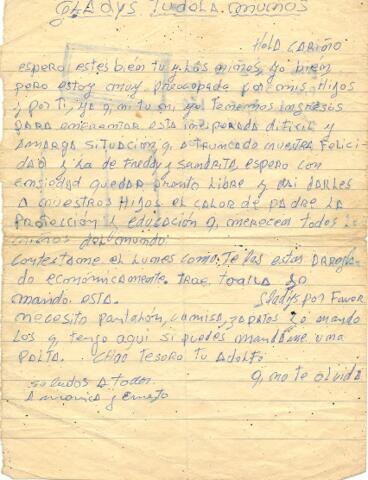 GLADYS Tudela. comunos
Hola CARiño
espero estes bien tu y los niños, yo bien
pero estoy muy preocupado por mis Hijos
y por ti, ya q, ni tu ni yo tenemos ingresos
PARA enfrentar esta inesperada dificil y
AmargA situacion q, a truncado nuestra Felici-
DAD y la de Freddy y Sandrita espero con
ensiedad quedar pronto libre y asi darles
A nuestros Hijos el CALOR de PADRE LA
PROtección y educación q, merecem todos los
niños del mundo.
Contestame el Lunes como te las estas arregla
do económicamente. trae toalla yo
mando esta. Gladys por Favor
necesito pantalón, camisa, zapatos yo mando
Los q, tengo aqui si puedes mandame una
PALTA. CHAO tesoro tu Adolfo
q, no te olvida
Saludos A todos.
A monica y ernesto